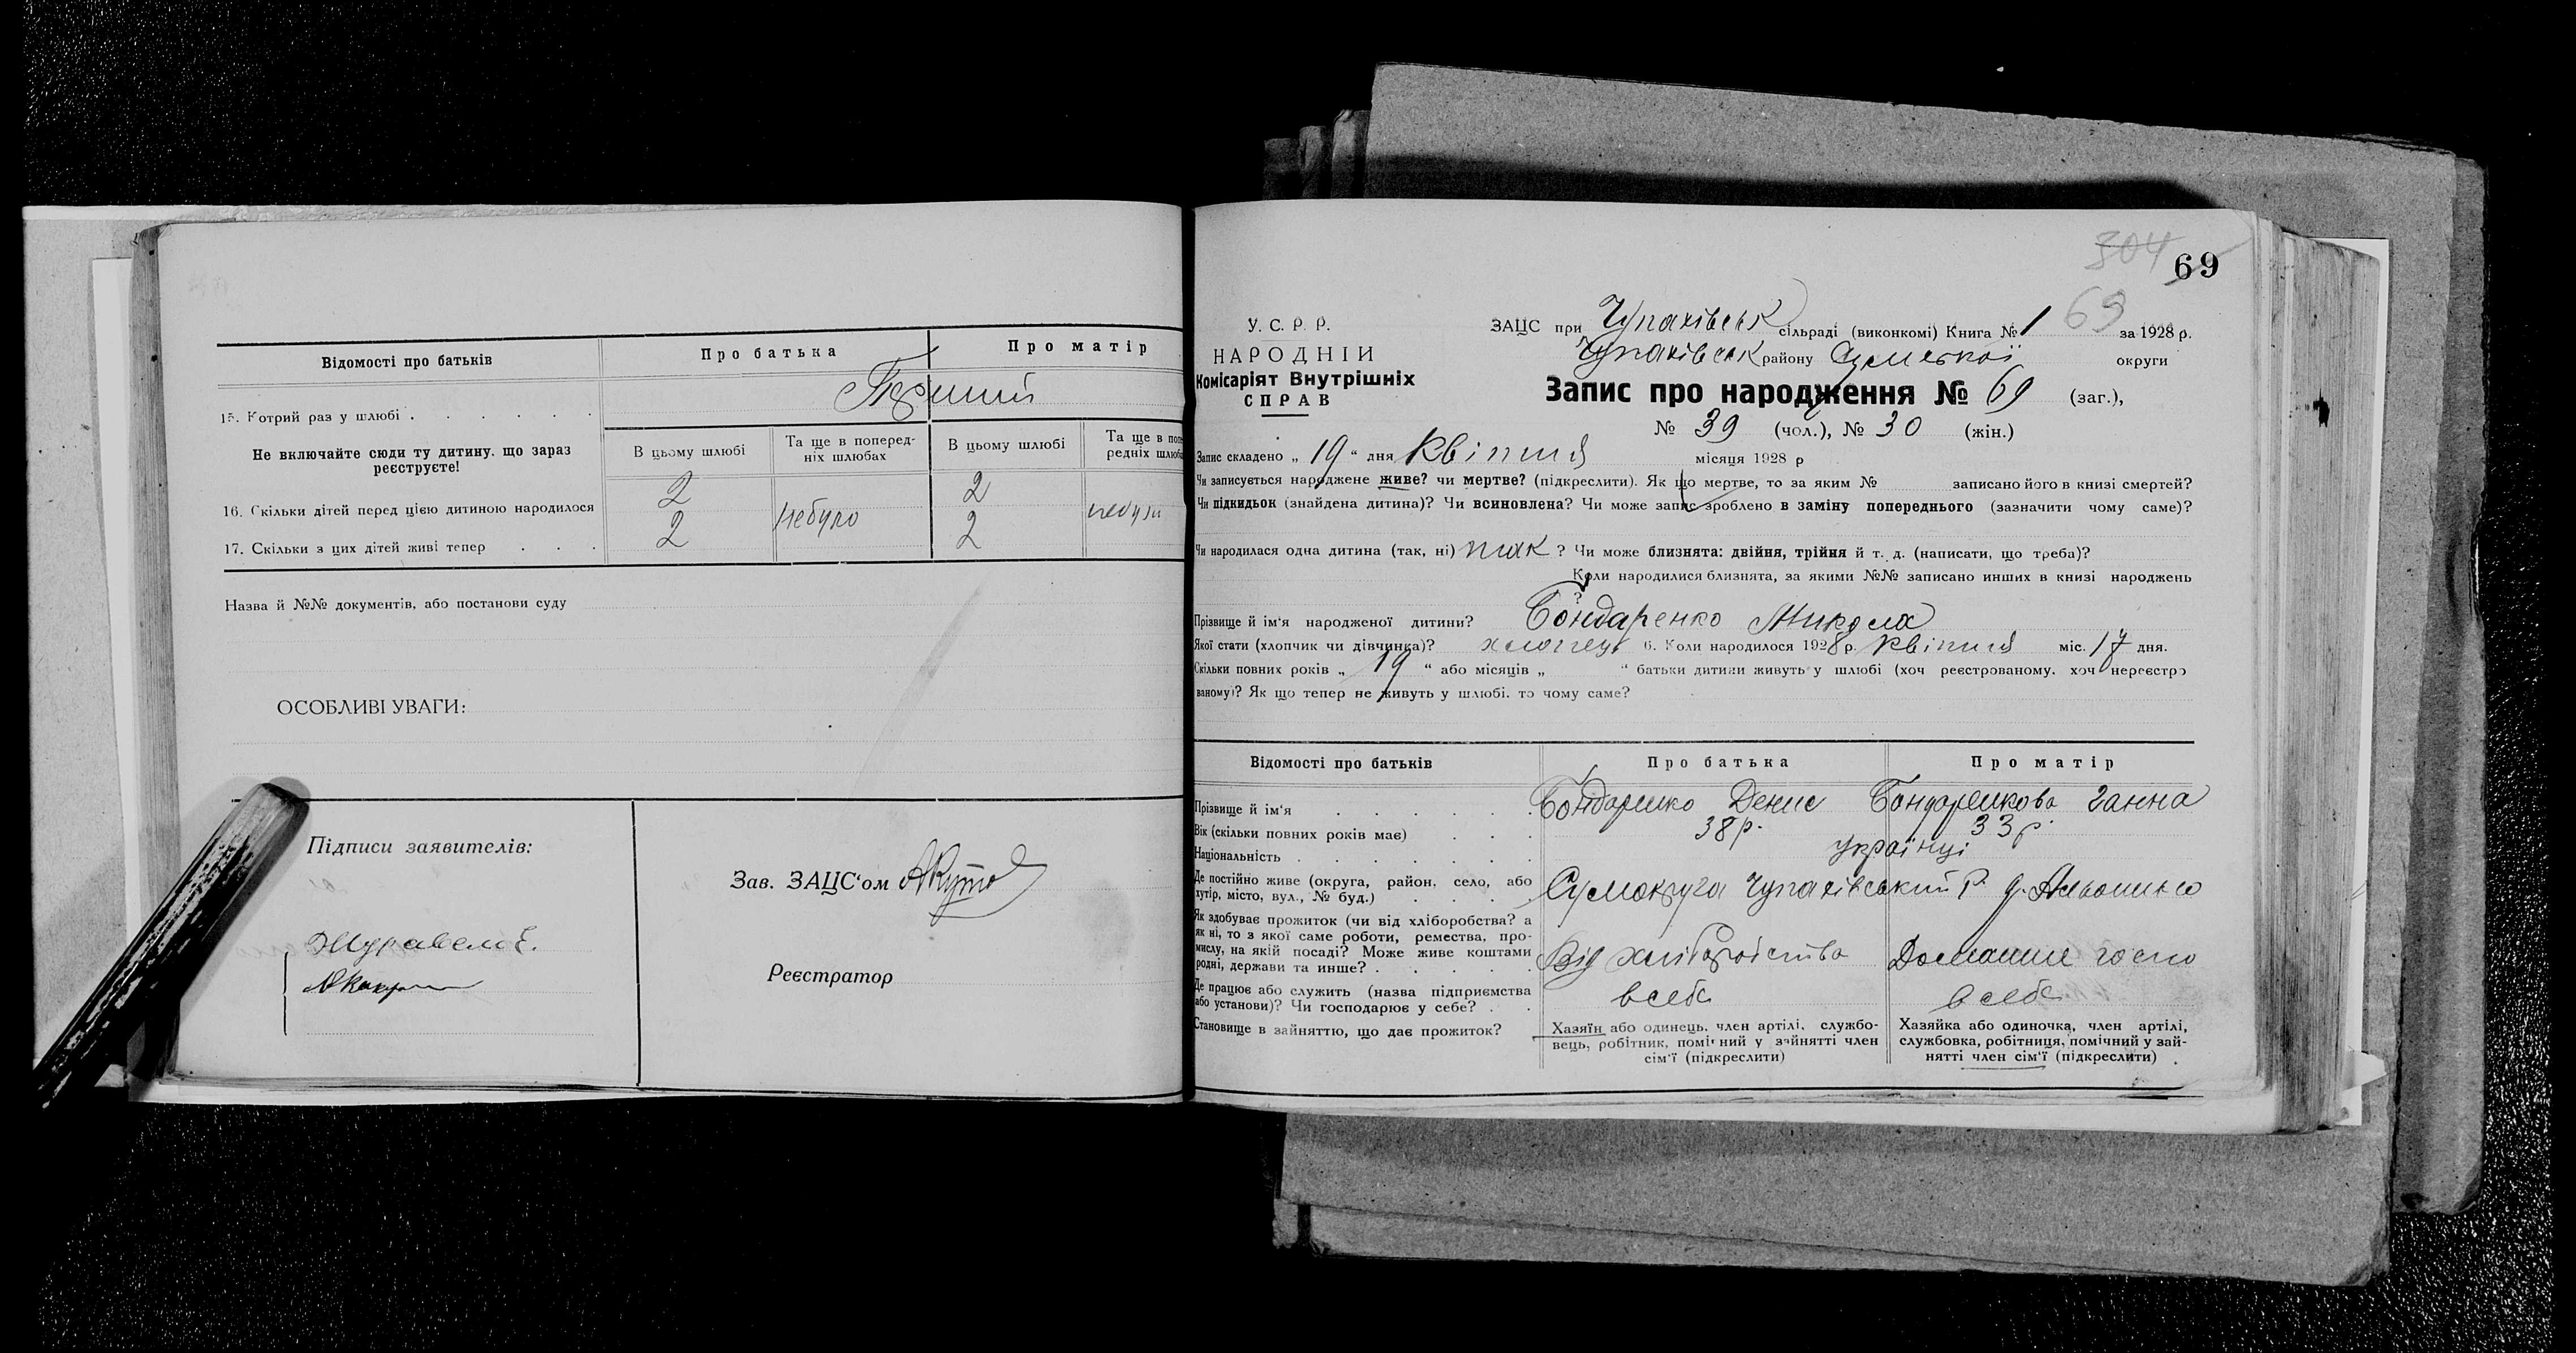 Відомості про батьків
Про батька
Про матір
15. Котрий раз у шлюбі
Перший
Не включайте сюди ту дитину, що зараз реєструєте!
В цьому шлюбі
Та ще в поперед-
ніх шлюбах
В цьому шлюбі
Та ще в попе
редніх шлюба
16. Скільки дітей перед цією дитиною народилося
2
небуло
2
17. Скільки з цих дітей живі тепер
2
2
Назва й №№ документів, або постанови суду
ОСОБЛИВІ УВАГИ:
Підписи заявителів:
Журавель Є.
Зав. ЗАЦС‘ом
Реєстратор
304
69
69
У. С. Р. Р.
НАРОДНІЙ
Комісаріят Внутрішніх
СПРАВ
ЗАЦС при Чупахівськ сільраді (виконкомі) Книга № 1 за 1928 р.
Чупахівськ району Сумської округи
Запис про народження № 69 (заг.),
№ 39 (чол.), № 30 (жін.)
Запис складено „ 19 “ дня Квітня місяця 1928 р
Чи записується народжене живе? чи мертве? (підкреслити). Як що мертве, то за яким № записано його в книзі смертей?
Чи підкидьок (знайдена дитина)? Чи всиновлена? Чи може запис зроблено в заміну попереднього (зазначити чому саме)?
Чи народилася одна дитина (так, ні) так ? Чи може близнята: двійня, трійня й т. д. (написати, що треба)?
Коли народилися близнята, за якими №№ записано инших в книзі народжень
?
Прізвище й ім‘я народженої дитини? Бондаренко Микола
Якої стати (хлопчик чи дівчинка)? хлопець 6. Коли народилося 1928 р. Квітня міс. 17 дня.
Скільки повних років „ 19 “ або місяців „ “ батьки дитини живуть у шлюбі (хоч реєстрованому, хоч нереєстро
ваному)? Як що тепер не живуть у шлюбі, то чому саме?
Відомості про батьків
Про батька
Про матір
Прізвище й ім‘я
Бондаренко Денис
Бондаренкова Ганна
Вік (скільки повних років має)
38 р.
33 р.
Національність
Українці
Де постійно живе (округа, район, село, або
хутір, місто, вул., № буд.)
Сумокруга Чупахівський Р.
Як здобуває прожиток (чи від хліборобства? а
як ні, то з якої саме роботи, ремества, про-
мислу, на якій посаді? Може живе коштами
родні, держави та инше?
Від хліборобства
Домашнє госпо
Де працює або служить (назва підприємства
або установи)? Чи господарює у себе?
всебе
всебе
Становище в зайняттю, що дає прожиток?
Хазяїн або одинець, член артілі, службо-
вець, робітник, помічний у зайнятті член
сім‘ї (підкреслити)
Хазяйка або одиночка, член артілі,
службовка, робітниця, помічний у зай-
нятті член сім‘ї (підкреслити)